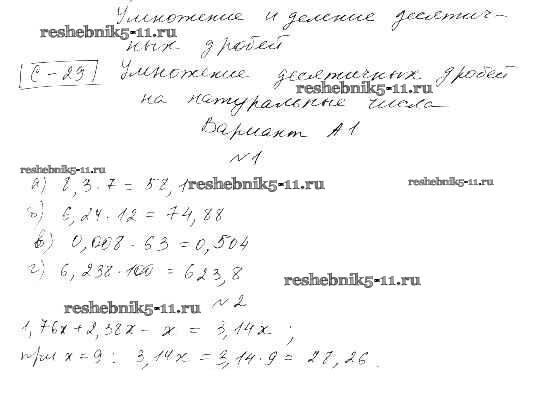 Умножение и деление десятич-
reshebnik5-11.ru
ных дробей
С-29 Умножение десятичных дробей
reshebnik5-11.ru
на натуральные числа
Вариант А1
№1
reshebnik5-11.ru
а) 8,3·7 = 58,1 reshebnik5-11.ru reshebnik5-11.ru
б) 6,24·12 = 74,88
в) 0,008·63 = 0,504
г) 6,238·100 = 623,8
reshebnik5-11.ru
reshebnik5-11.ru №2
1,76x + 2,38x - x = 3,14x ;
при x = 9: 3,14x = 3,14·9 = 28,26.